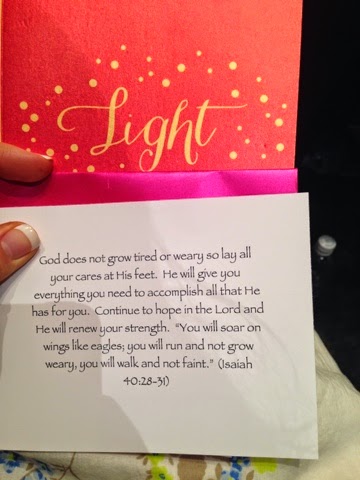 Light
God does not grow tired or weary so lay all
your cares at His feet. He will give you
everything you need to accomplish all that He
has for you. Continue to hope in the Lord and
He will renew your strength. "You will soar on
wings like eagles; you will run and not grow
weary, you will walk and not faint." (Isaiah
40:28-31)